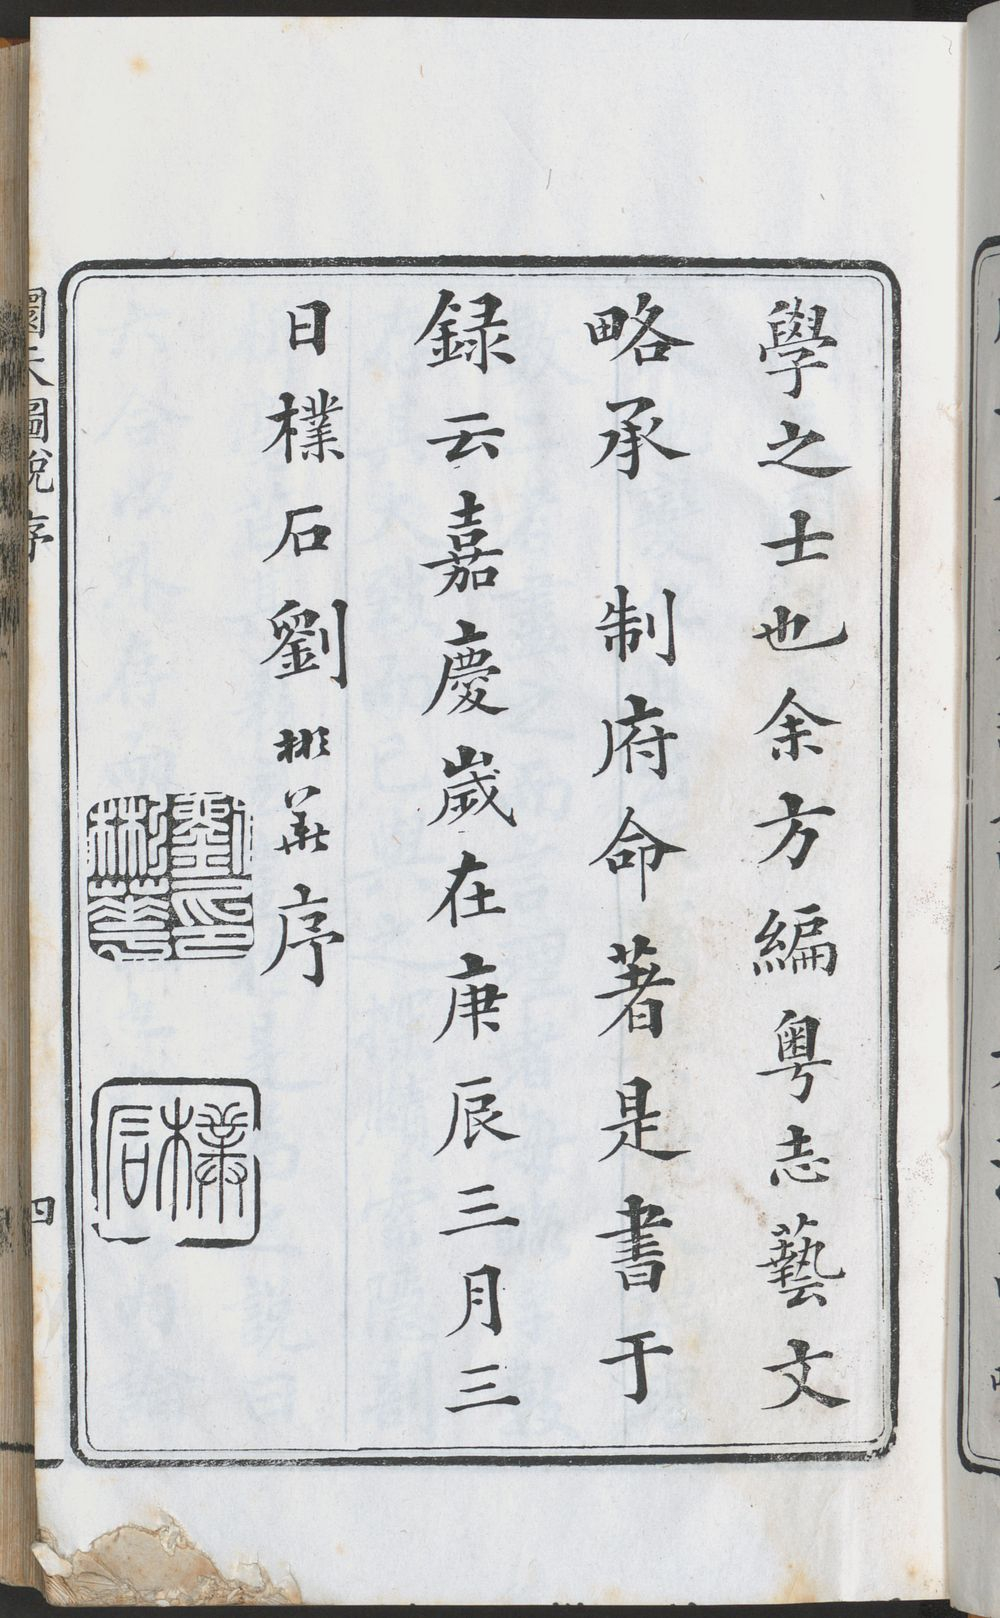 學之士也余方編粵志藝文
略承 制府命著是書于
録云嘉慶歲在庚辰三月三
日樸石劉彬華序
劉印彬華
樸石
圜天圖說序
四